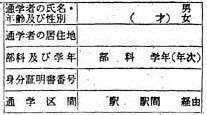 通学者の氏名・
年齢及び性別 （ 才） 男 女
通学者の居住地
部科及び学年 部 科 学年(年次)
身分証明書番号
通学区間 駅 駅間 経由